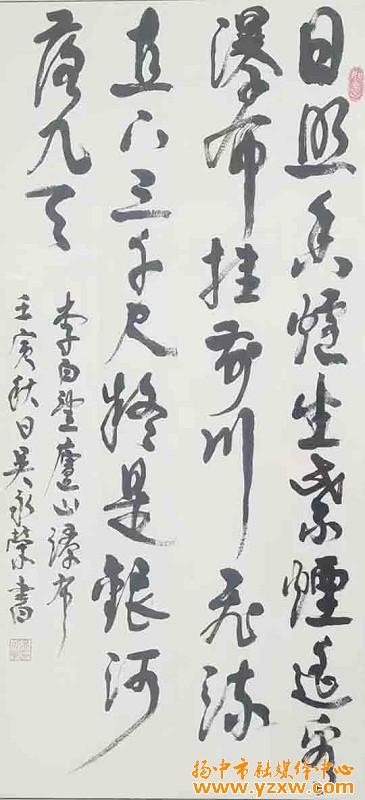 日照香爐生紫煙遙看
瀑布挂前川飛流
直下三千尺疑是銀河
落九天
李白望廬山瀑布
壬寅秋日吳永榮書
扬中市融媒体中心
www.yzxw.com